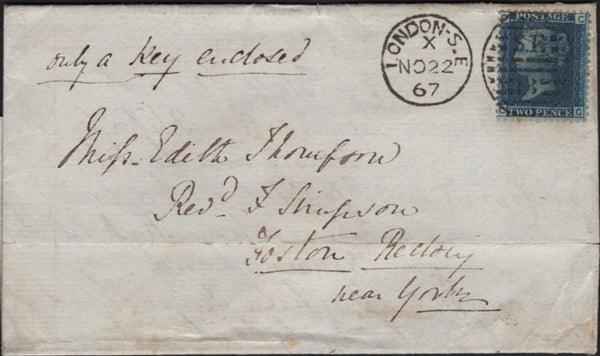 LONDON·S·E
X
NO22
67
POSTAGE
SE
TWO PENCE
only a key enclosed
Miss Edith Thompson
Revd F Simpson
Foston Rectory
near York